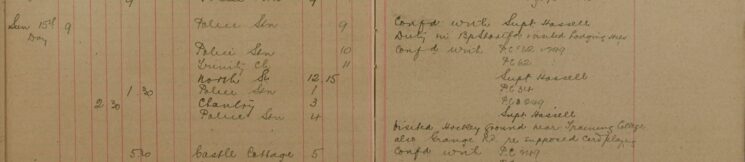 Sun 15th 9 Police Stn 9 Confd with Supt Hassell
Day Duty in Bp Stortford visited Lodging Hses
Police Stn 10 Confd with P.C. 249
Trinity Ch 11 PC 62
North St 12.15 Supt Hassell
1.30 Police Stn 1 PC 34
2 30 Chantry 3 PC 249
Police Stn 4 Supt Hassell
Visited Hockey Ground near Training College
also Grange Rd re supposed Card playing
5.30 Castle Cottage 5 Confd with PC 249